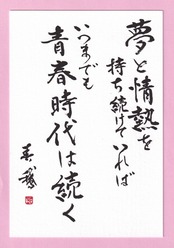 夢と情熱を
持ち続けていれば
いつまでも
青春時代は続く